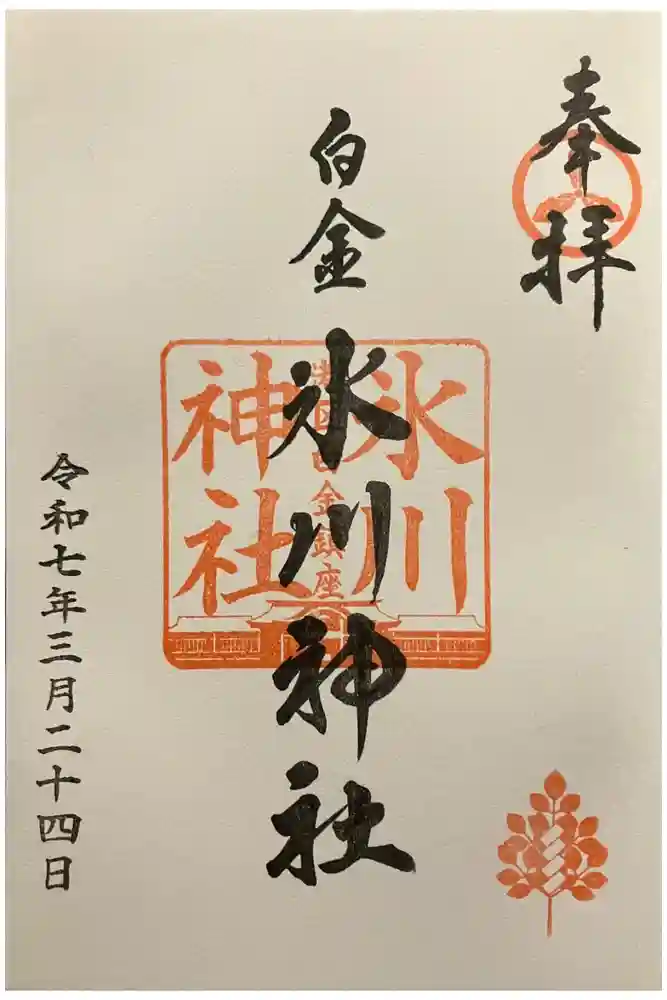 奉拝
白金
氷川神社
氷川
神社
白金鎮座
令和七年三月二十四日